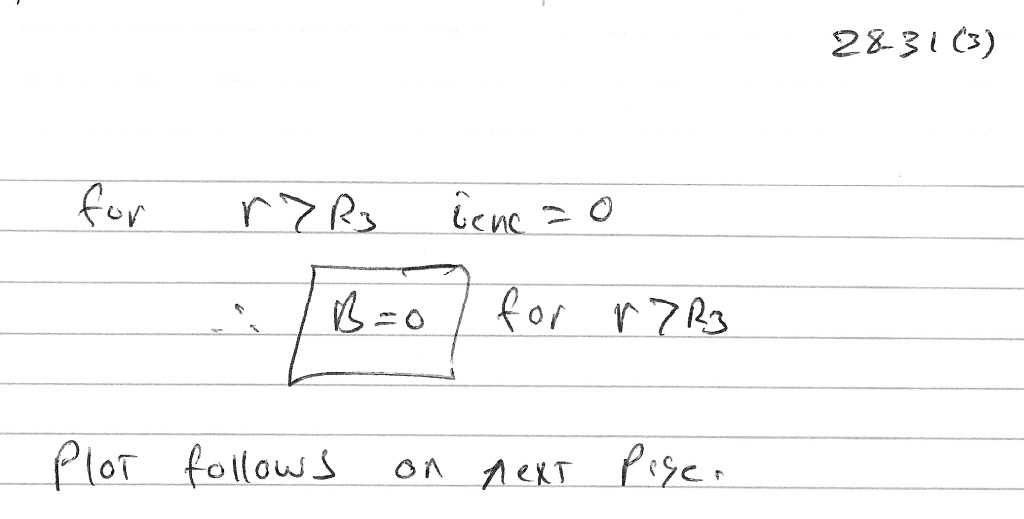 28-31 (3)
for r > R3 ienc = 0
∴ B = 0 for r > R3
Plot follows on next page.